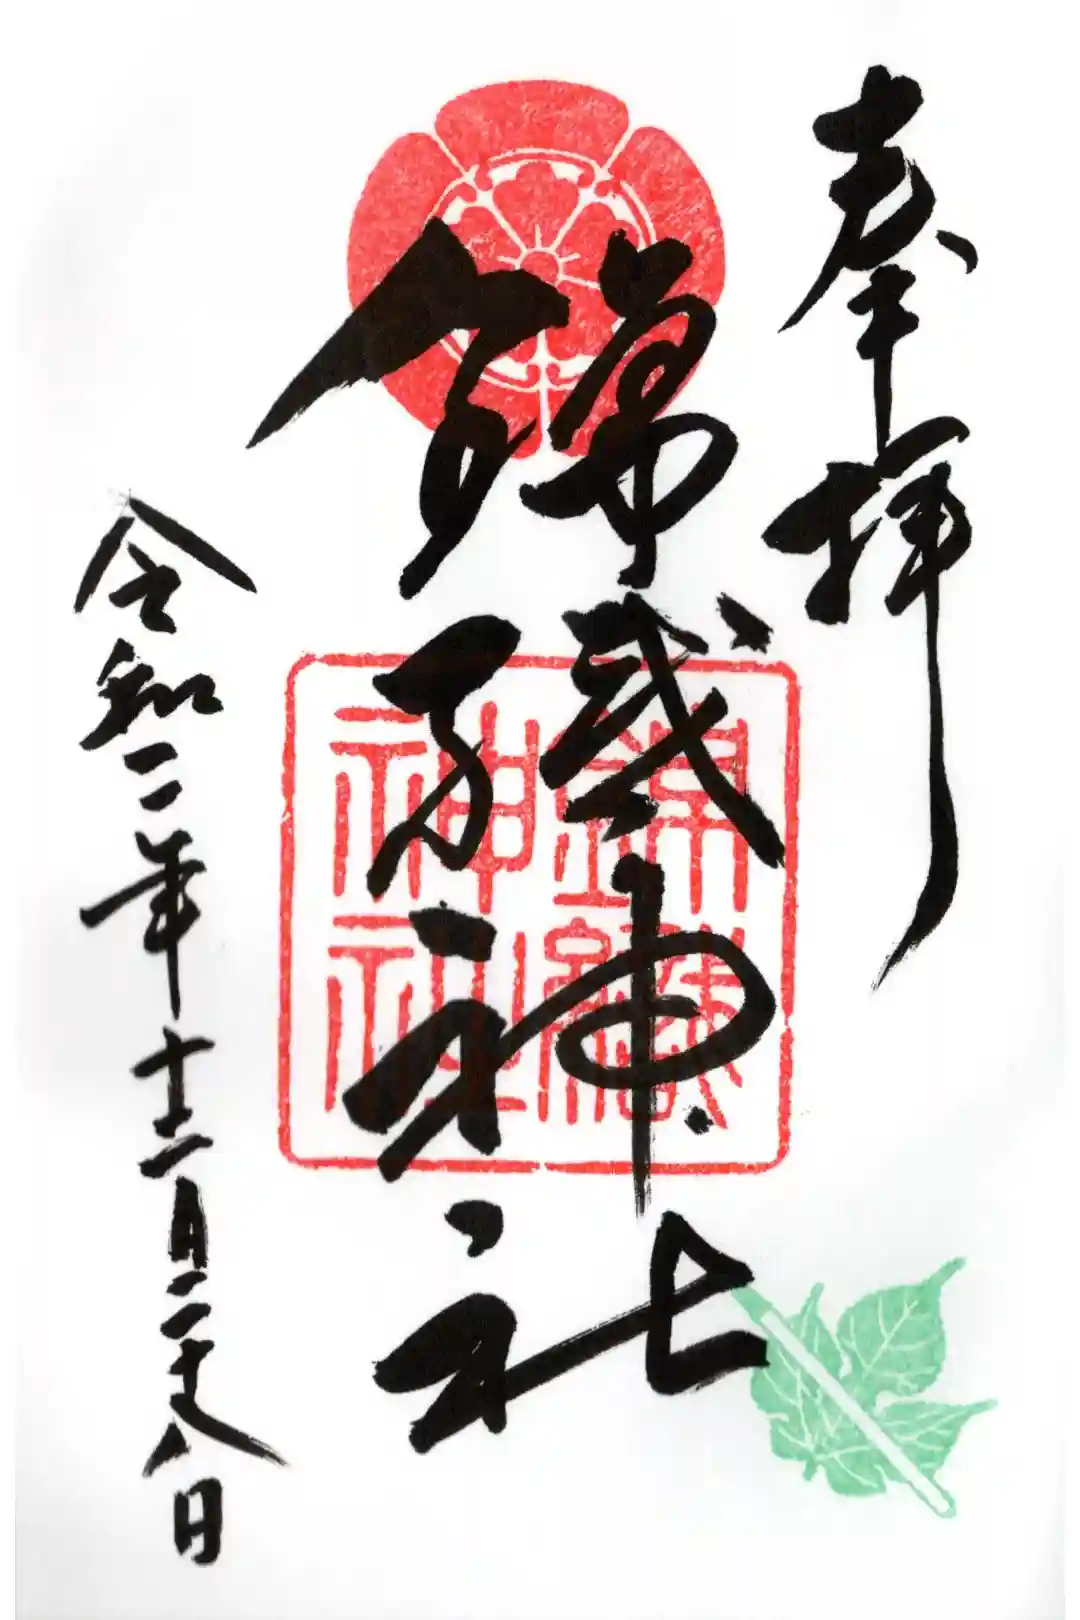 奉拝
錦織神社
錦織
神社
令和二年十二月二十八日